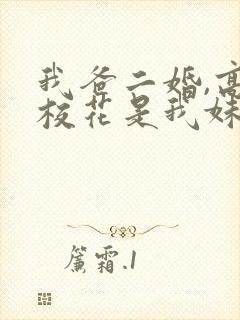 我爸二婚,高
校花是我妹
簾霜.1